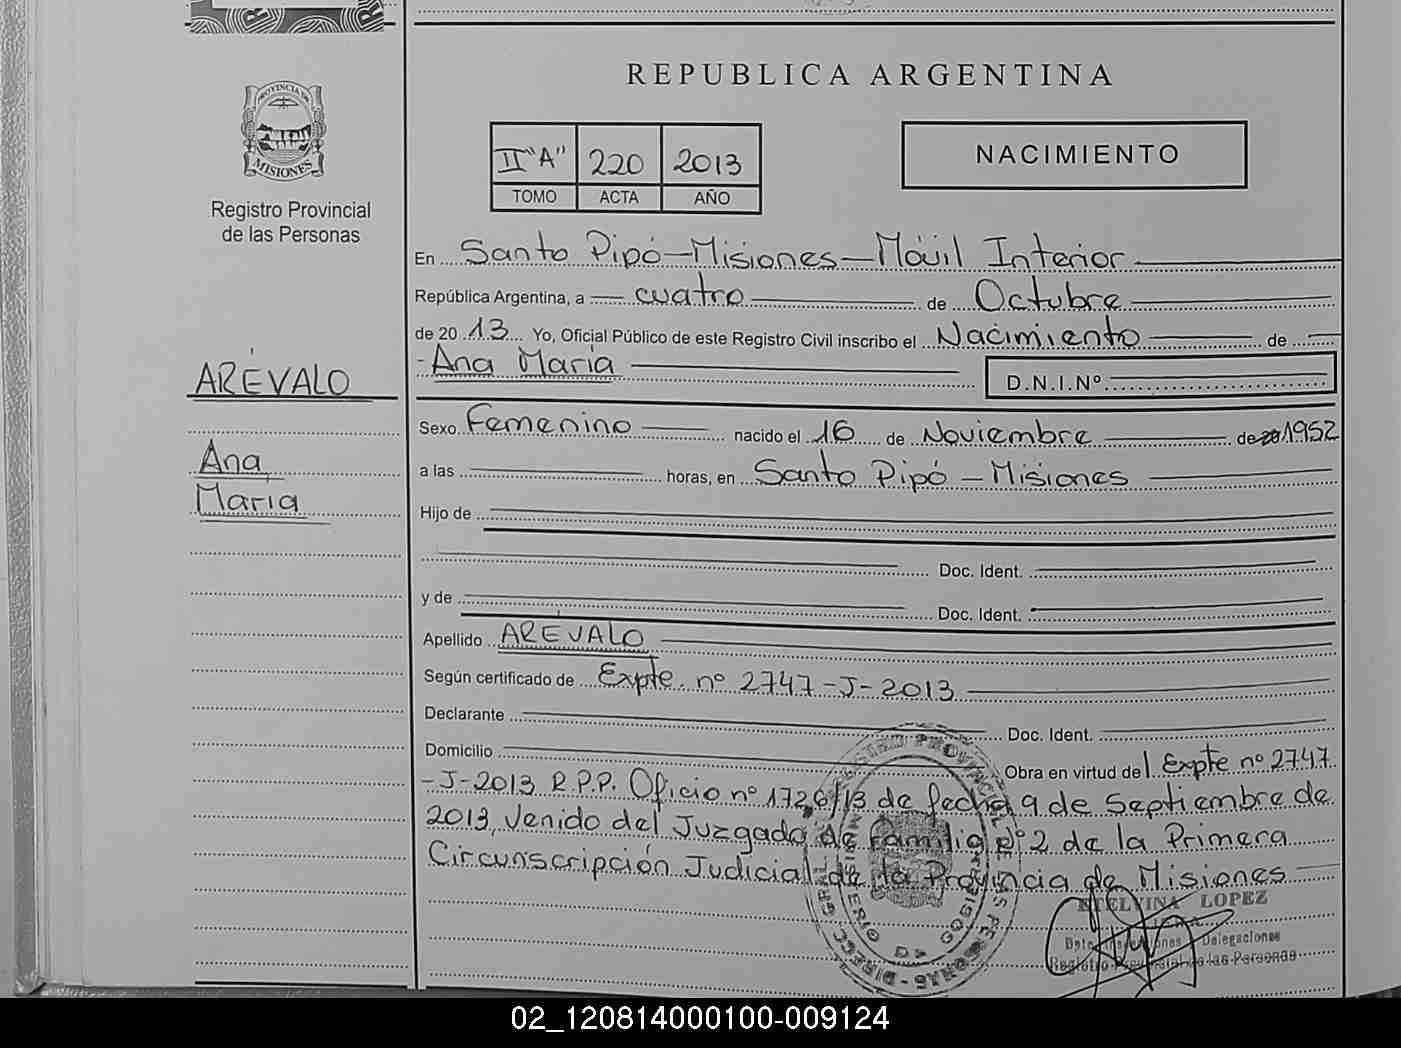 REPUBLICA ARGENTINA
PROVINCIA DE
MISIONES
Registro Provincial
de las Personas
II "A" 220 2013
TOMO ACTA AÑO
NACIMIENTO
En Santo Pipó - Misiones - Móvil Interior
República Argentina, a cuatro de Octubre
de 2013 Yo, Oficial Público de este Registro Civil inscribo el Nacimiento de
- Ana María
D.N.I.Nº
ARÉVALO
Ana
María
Sexo Femenino nacido el 16 de Noviembre de 1952
a las horas, en Santo Pipó - Misiones
Hijo de
Doc. Ident.
y de Doc. Ident.
Apellido ARÉVALO
Según certificado de Expte. nº 2747-J-2013
Declarante Doc. Ident.
Domicilio Obra en virtud del Expte nº 2747
-J-2013 R.P.P. Oficio nº 1726/13 de fecha 9 de Septiembre de
2013, venido del Juzgado de Familia Nº 2 de la Primera
Circunscripción Judicial de la Provincia de Misiones
ETELVINA LOPEZ
Delegaciones
Registro Provincial de las Personas
02_120814000100-009124